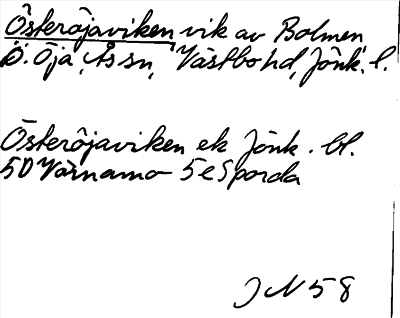 Österöjaviken vik av Bolmen
Ö. Öja, Ås sn, Västbo hd, Jönk. l.
Österöjaviken ek Jönk. bl.
5D Värnamo 5e Sporda
JN 58